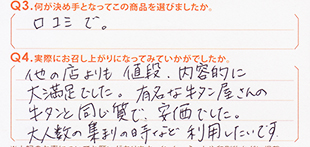 Q3.何が決め手となってこの商品を選びましたか。
口コミで。
Q4.実際にお召し上がりになってみていかがでしたか。
他の店よりも 値段、内容的に
大満足でした。有名な牛タン屋さんの
牛タンと同じ質で、安価でした。
大人数の集まりの時など 利用したいです